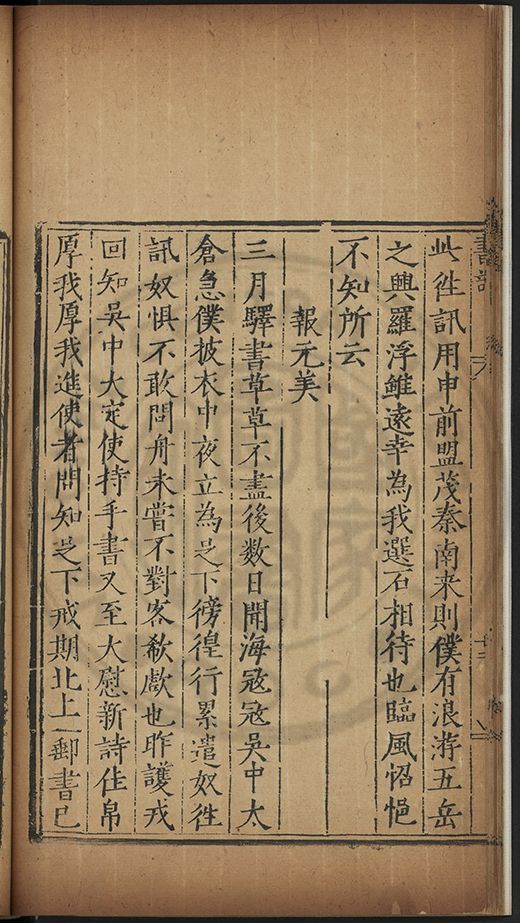 此徃訊用申前盟茂秦南来則僕有浪游五岳
之興羅浮雖遠幸為我選石相待也臨風怊悒
不知所云
報元美
三月驛書草草不盡後数日開海宼宼吳中太
倉急僕披衣中夜立為足下徬徨行累遣奴徃
訊奴惧不敢問舟未嘗不對客欷歔也昨護戎
回知吳中大定使持手書又至大慰新詩佳帛
厚我厚我進使者問知足下戒期北上一郵書已